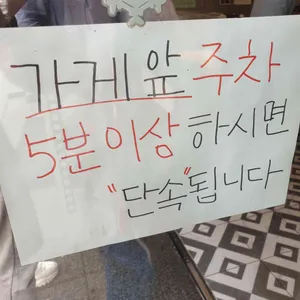 가게 앞 주차
5분이상 하시면
"단속"됩니다